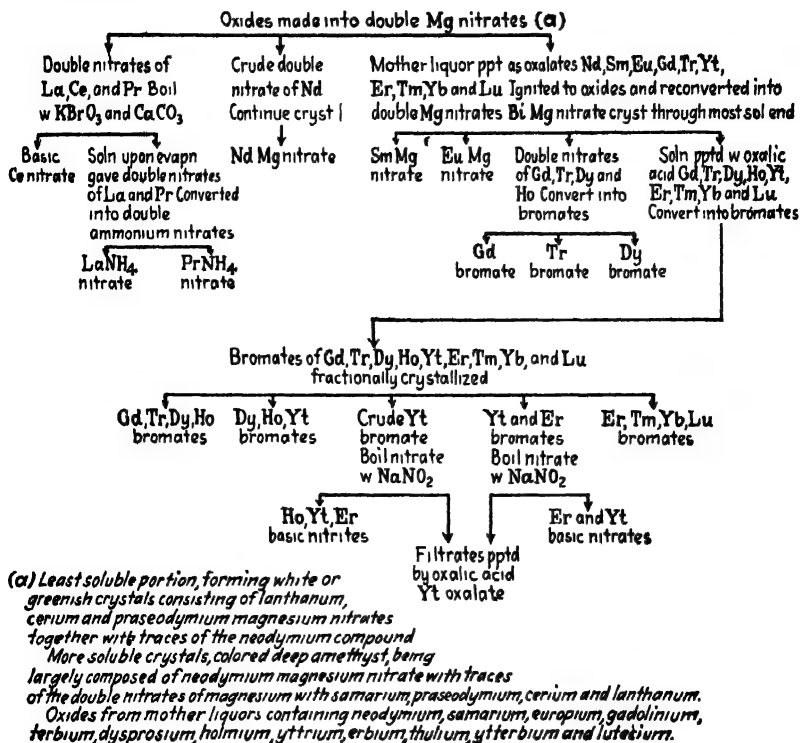 Oxides made into double Mg nitrates (a)
Double nitrates of
La, Ce, and Pr Boil
w KBrO₃ and CaCO₃
Crude double
nitrate of Nd
Continue cryst
Mother liquor ppt as oxalates Nd, Sm, Eu, Gd, Tr, Yt,
Er, Tm, Yb and Lu Ignited to oxides and reconverted into
double Mg nitrates Bi Mg nitrate cryst through most sol end
Basic
Ce nitrate
Soln upon evapn
gave double nitrates
of La and Pr Converted
into double
ammonium nitrates
Nd Mg nitrate
Sm Mg
nitrate
Eu Mg
nitrate
Double nitrates
of Gd, Tr, Dy and
Ho Convert into
bromates
Soln pptd w oxalic
acid Gd, Tr, Dy, Ho, Yt,
Er, Tm, Yb and Lu
Convert into bromates
LaNH₄
nitrate
PrNH₄
nitrate
Gd
bromate
Tr
bromate
Dy
bromate
Bromates of Gd, Tr, Dy, Ho, Yt, Er, Tm, Yb, and Lu
fractionally crystallized
Gd, Tr, Dy, Ho
bromates
Dy, Ho, Yt
bromates
Crude Yt
bromate
Boil nitrate
w NaNO₂
Yt and Er
bromates
Boil nitrate
w NaNO₂
Er, Tm, Yb, Lu
bromates
Ho, Yt, Er
basic nitrites
Er and Yt
basic nitrates
Filtrates pptd
by oxalic acid
Yt oxalate
(a) Least soluble portion, forming white or
greenish crystals consisting of lanthanum,
cerium and praseodymium magnesium nitrates
together with traces of the neodymium compound
More soluble crystals, colored deep amethyst, being
largely composed of neodymium magnesium nitrate with traces
of the double nitrates of magnesium with samarium, praseodymium, cerium and lanthanum.
Oxides from mother liquors containing neodymium, samarium, europium, gadolinium,
terbium, dysprosium, holmium, yttrium, erbium, thulium, ytterbium and lutecium.